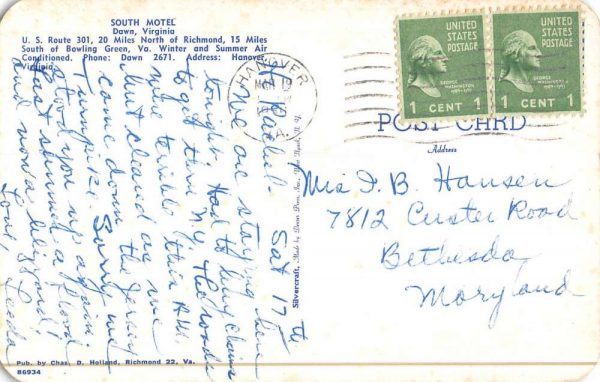 SOUTH MOTEL
Dawn, Virginia
U. S. Route 301, 20 Miles North of Richmond, 15 Miles
South of Bowling Green, Va. Winter and Summer Air
Conditioned. Phone: Dawn 2671. Address: Hanover,
Virginia
Sat 17th
Rachel-
We are staying here
tonight. Had to buy chains
to get thru N.Y. The roads
were terrible this A.M.
but cleared as we
came down the Jersey
Turnpike. Sorry we
stood you up again.
Last summer a flood
and now a blizzard!
Love,
Leeda
Pub. by Chas. D. Holland, Richmond 22, Va.
86934
Silvercraft, Made by Dexter Press, Inc., West Nyack, N. Y.
HANOVER
VA.
UNITED
STATES
POSTAGE
GEORGE
WASHINGTON
1789-1797
1 CENT 1
UNITED
STATES
POSTAGE
GEORGE
WASHINGTON
1789-1797
1 CENT 1
POST CARD
Address
F. B. Hansen
7812 Custer Road
Bethesda
Maryland